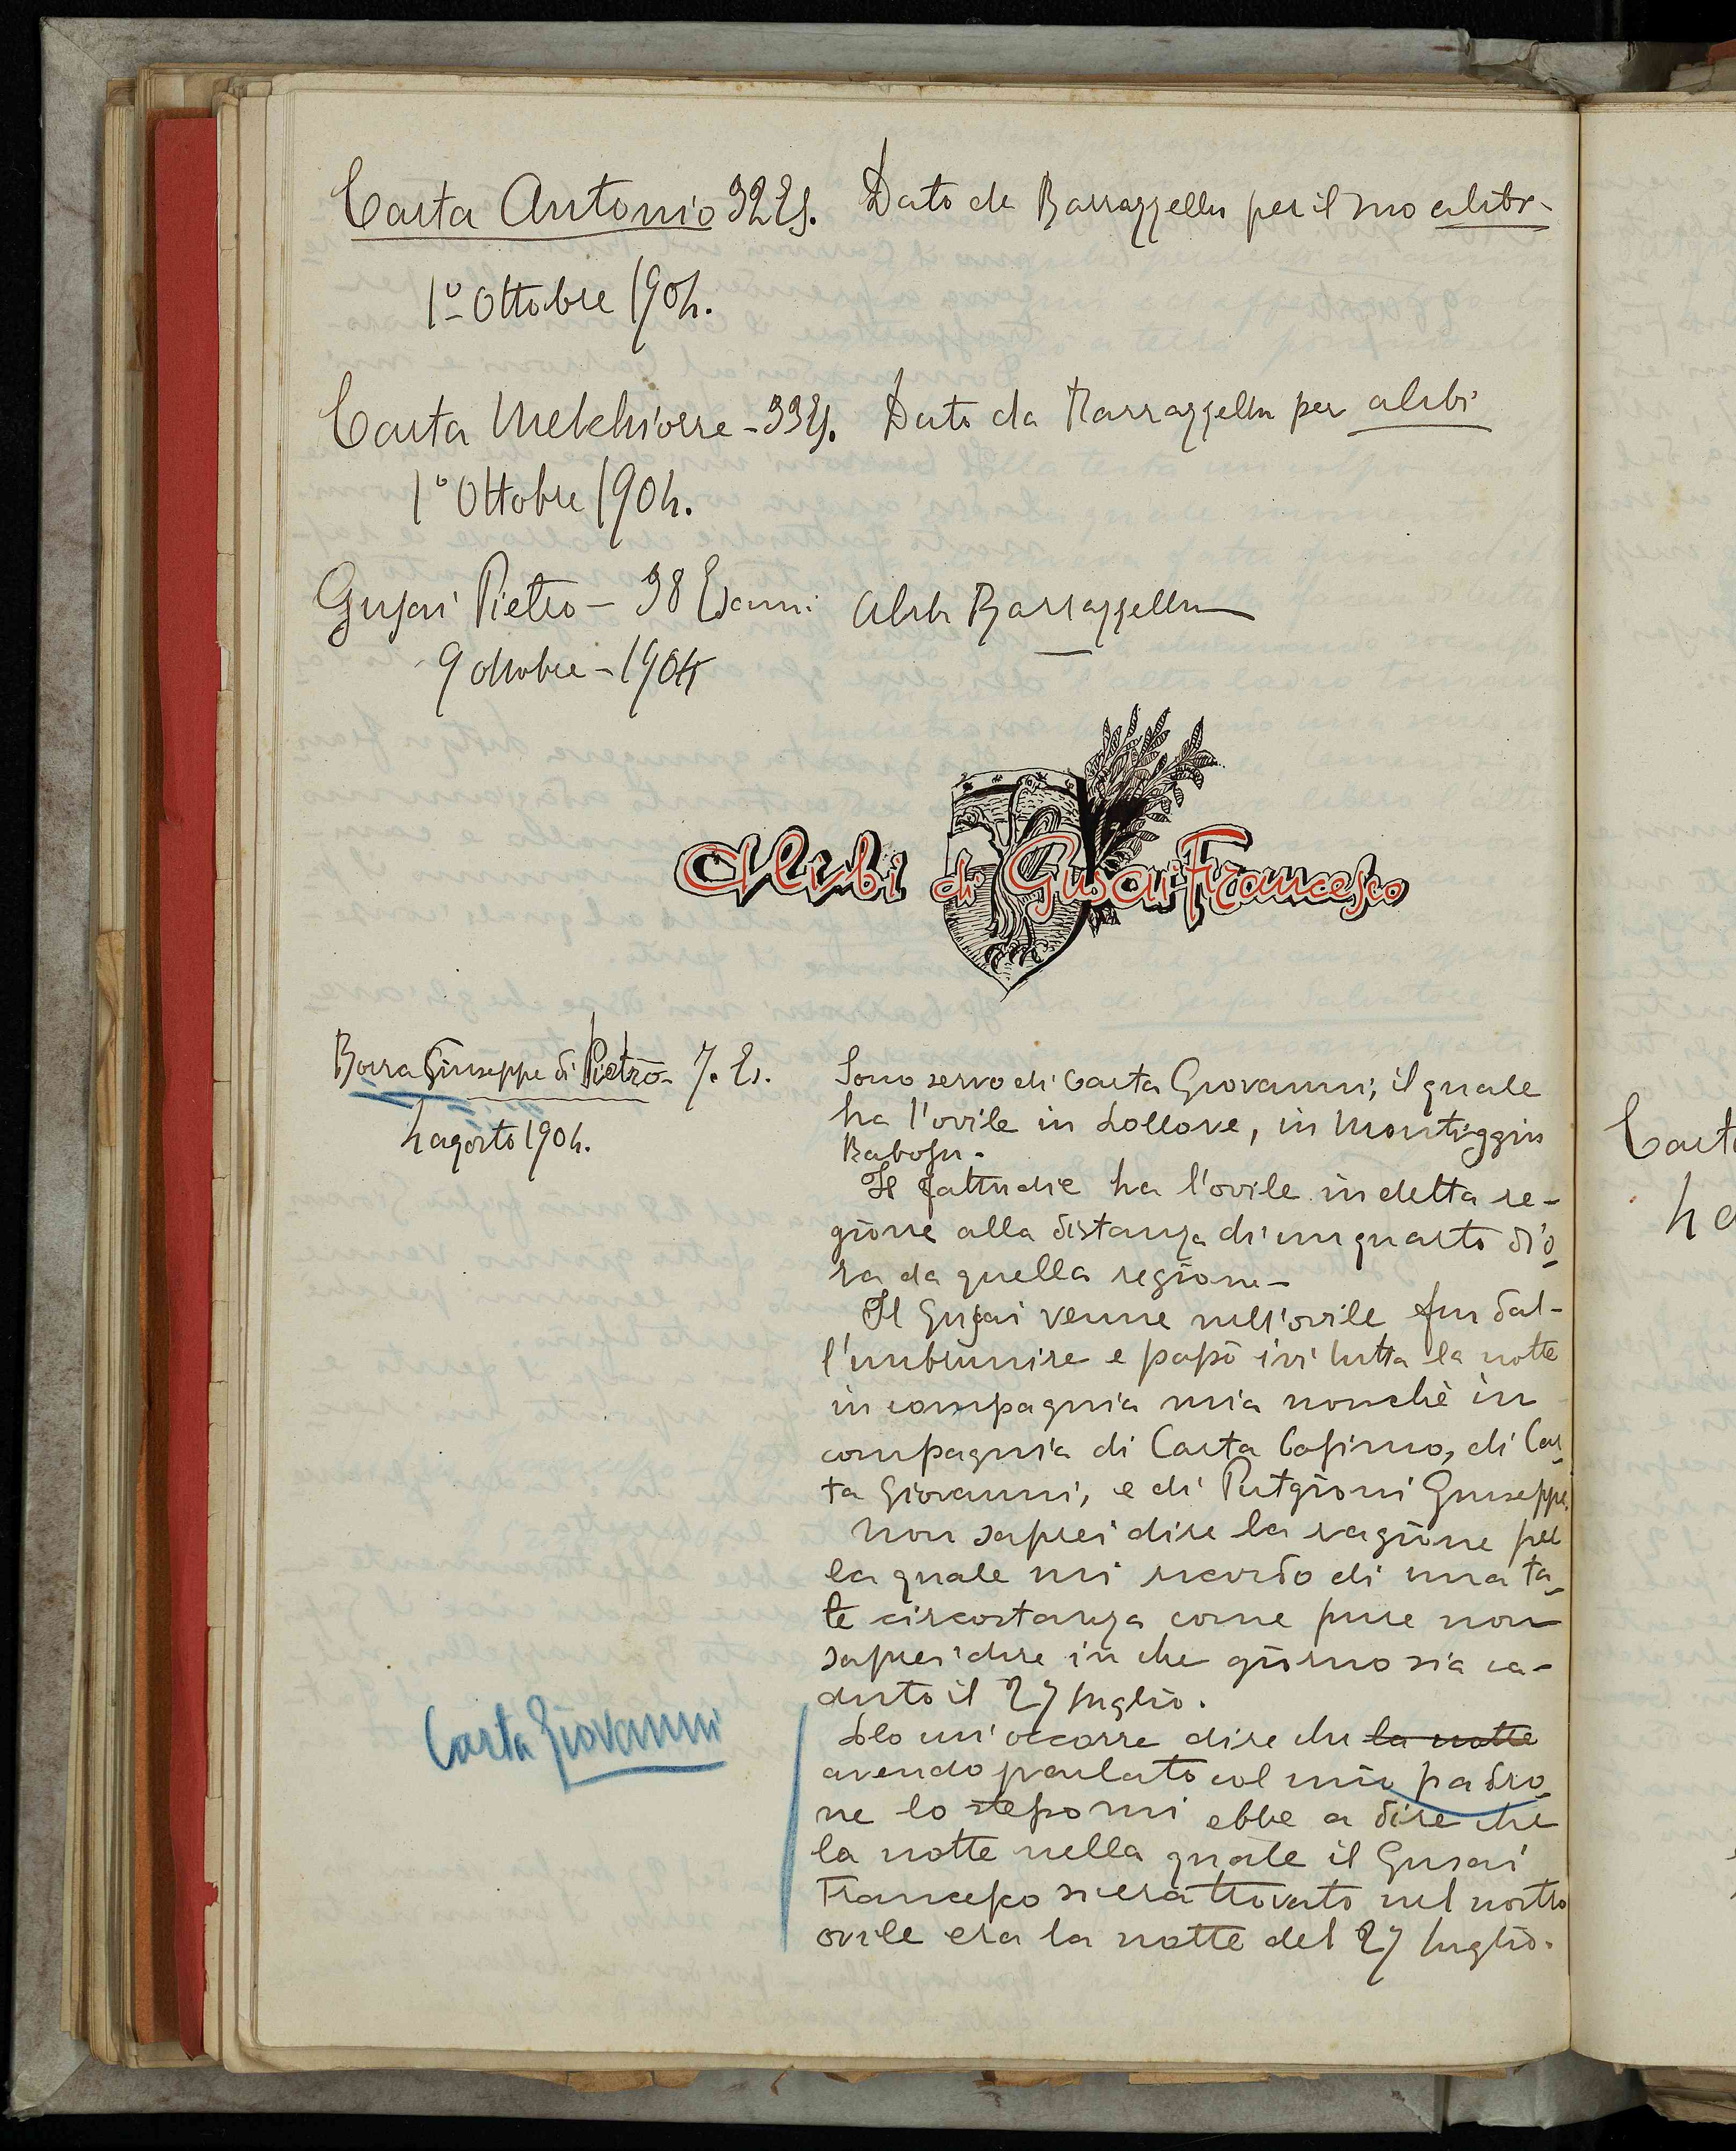 Carta Antonio 32 Es. Dato da Barrazzellu per il suo alibi-
1º Ottobre 1904.
Carta Melchiorre - 33 Es. Dato da Barrazzellu per alibi
1º Ottobre 1904.
Gusai Pietro - 38 Esami Alibi Barrazzellu
9 ottobre - 1904
Alibi di Gusai Francesco
Borra Giuseppe di Pietro - 7. Es.
4 agosto 1904.
Sono servo di Carta Giovanni, il quale
ha l'ovile in Lollove, in
Il Fattudie ha l'ovile in detta re-
gione alla distanza di un quarto d'o-
ra da quella regione-
Il Gusai venne nell'ovile fin dal-
l'imbrunire e passò ivi tutta la notte
in compagnia mia nonchè in
compagnia di Carta Cosimo, di Car-
ta Giovanni, e di Putgioni Giuseppe.
Non saprei dire la ragione per
la quale mi ricordo di una ta-
le circostanza come pure non
saprei dire in che giorno sia ca-
duto il 27 luglio.
Solo mi occorre dire che la notte
avendo parlato col mio padro-
ne lo stesso mi ebbe a dire che
la notte nella quale il Gusai
Francesco si era trovato nel nostro
ovile era la notte del 27 luglio.
Carta Giovanni
Cart